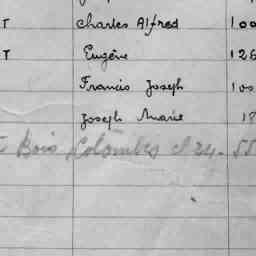 T Charles Alfred 100
T Eugène 126
Francis Joseph 100
Joseph Marie 18
Bois Colombes